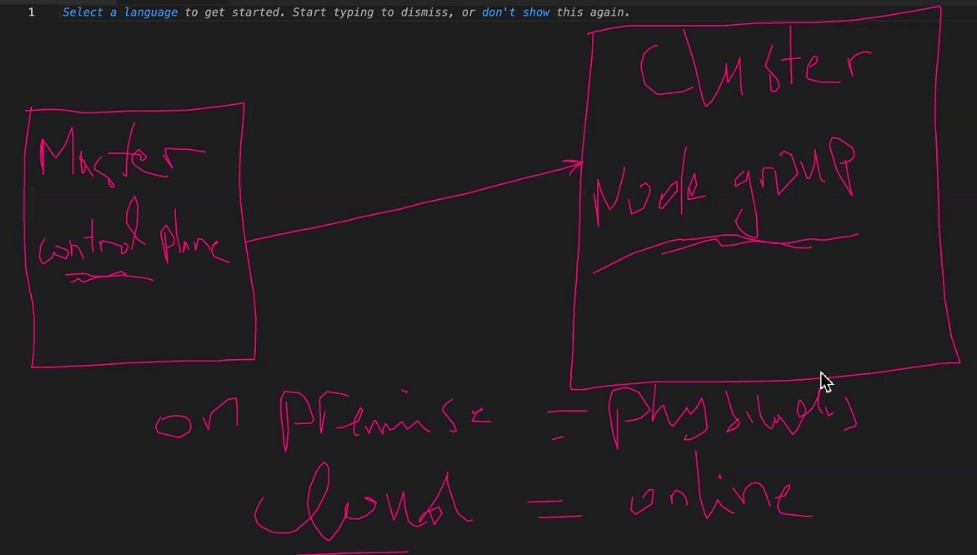 1 Select a language to get started. Start typing to dismiss, or don't show this again.
Master
control plane
Cluster
Node group
on premise =
cloud = online